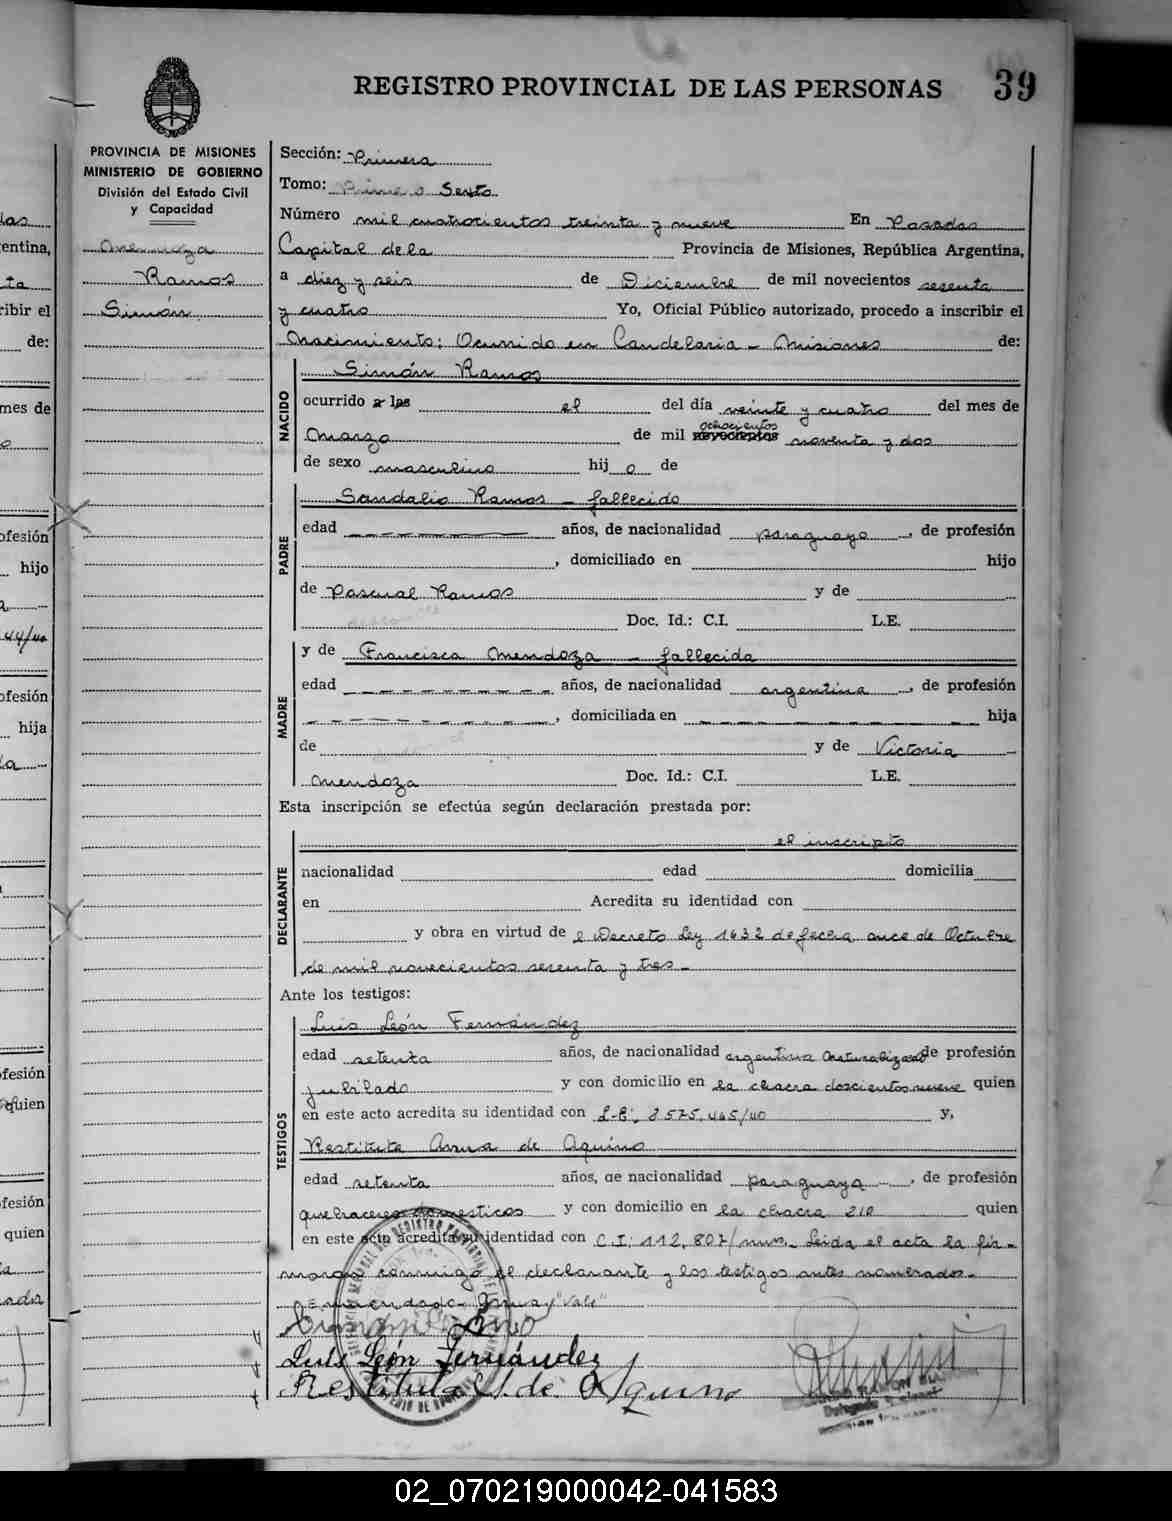 REGISTRO PROVINCIAL DE LAS PERSONAS 39
PROVINCIA DE MISIONES
MINISTERIO DE GOBIERNO
División del Estado Civil
y Capacidad
Ramos
Simón
Sección: Primera
Tomo: Primero Sexto
Número mil cuatrocientos treinta y nueve En Posadas
Capital de la Provincia de Misiones, República Argentina,
a diez y seis de Diciembre de mil novecientos sesenta
y cuatro Yo, Oficial Público autorizado, procedo a inscribir el
Nacimiento: Ocurrido en Candelaria - Misiones de:
NACIDO
Simón Ramos
ocurrido a las el del día veinte y cuatro del mes de
ochocientos
Marzo de mil novecientos noventa y dos
de sexo masculino hijo de
PADRE
Sandalio Ramos - fallecido
edad años, de nacionalidad paraguayo, de profesión
, domiciliado en hijo
de Pascual Ramos y de
Doc. Id.: C.I. L.E.
MADRE
y de Francisca Mendoza - fallecida
edad años, de nacionalidad argentina, de profesión
, domiciliada en hija
de y de Victoria
Mendoza Doc. Id.: C.I. L.E.
Esta inscripción se efectúa según declaración prestada por:
DECLARANTE
el inscripto
nacionalidad edad domicilia
en Acredita su identidad con
y obra en virtud de el Decreto Ley 1432 de fecha once de Octubre
de mil novecientos sesenta y tres -
Ante los testigos:
TESTIGOS
Luis León Fernández
edad setenta años, de nacionalidad argentina naturalizado de profesión
jubilado y con domicilio en la chacra doscientos nueve quien
en este acto acredita su identidad con L.E. 3575.445/40 y,
Restituta de Aquino
edad setenta años, de nacionalidad paraguaya, de profesión
quehaceres domesticos y con domicilio en la chacra 210 quien
en este acto acredita su identidad con C.I. 112.807/ Leida el acta la fir-
maron conmigo el declarante y los testigos antes nomerados -
Enmendado "Vale"
Luis León Fernández
Restituta de Aquino
02_070219000042-041583